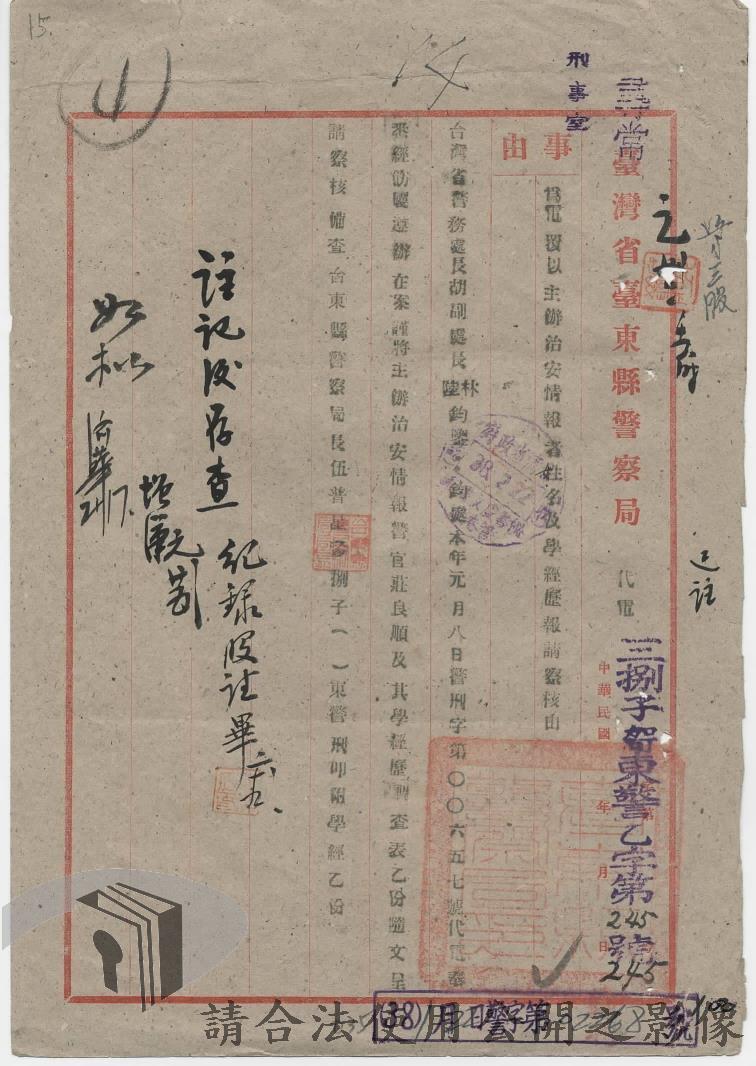 15.
刑事室
第三股
臺灣省臺東縣警察局
代電
已註
中華民國 年 月 日
東警乙字第245號
245
事由
為電覆以主辦治安情報者姓名及學經歷報請察核由
台灣省警務處長胡副處長林陸鈞鑒
鈞處本年元月八日警刑字第〇〇六五七號代電奉
悉經飭遵辦在案謹將主辦治安情報警官莊良順及其學經歷調查表乙份隨文呈
請察核備查台東縣警察局長伍普 捌子( )東警刑叩附學經乙份
紀錄股註畢
註記後存查
如擬
38.2.22
(38) 月 日警字第 號
請合法使用公開之影像